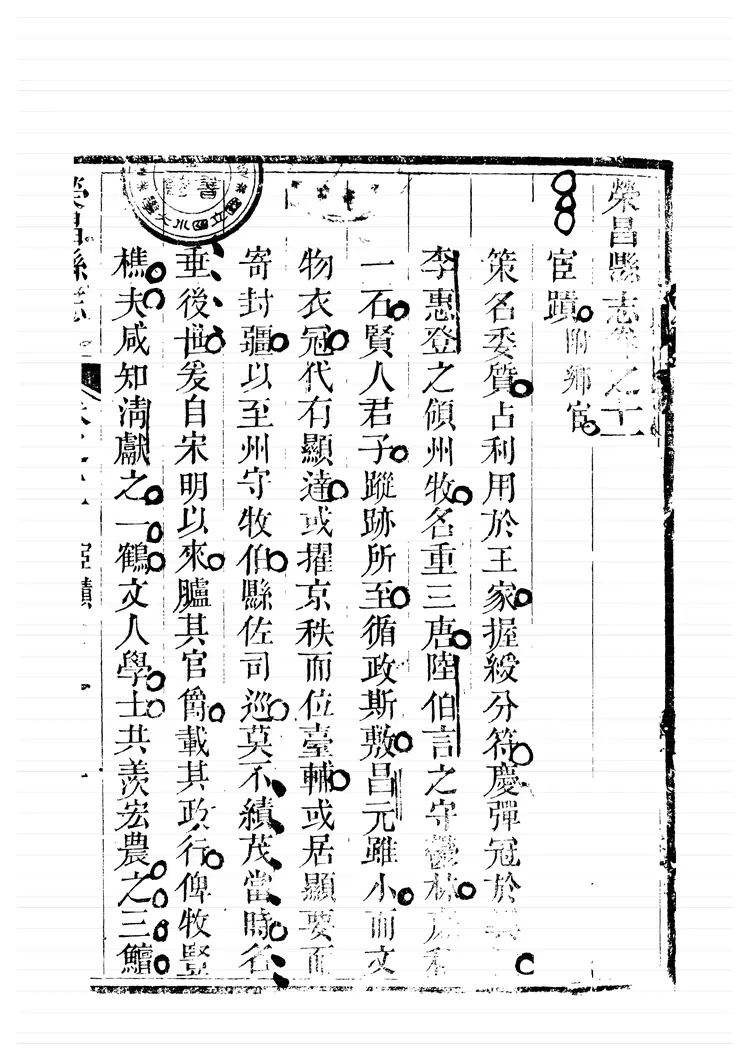 榮昌縣志卷之十一
宦蹟附鄉宦
策名委質占利用於王家握綬分符慶彈冠於
李惠登之領州牧名重三唐陸伯言之守鬱林
一石賢人君子蹤跡所至循政斯敷昌元雖小而文
物衣冠代有顯達或擢京秩而位臺輔或居顯要而
寄封疆以至州守牧伯縣佐司巡莫不績茂當時名
垂後世爰自宋明以來臚其官爵載其政行俾牧豎
樵夫咸知淸獻之一鶴文人學士共羨宏農之三鱣
榮昌縣志
宦蹟